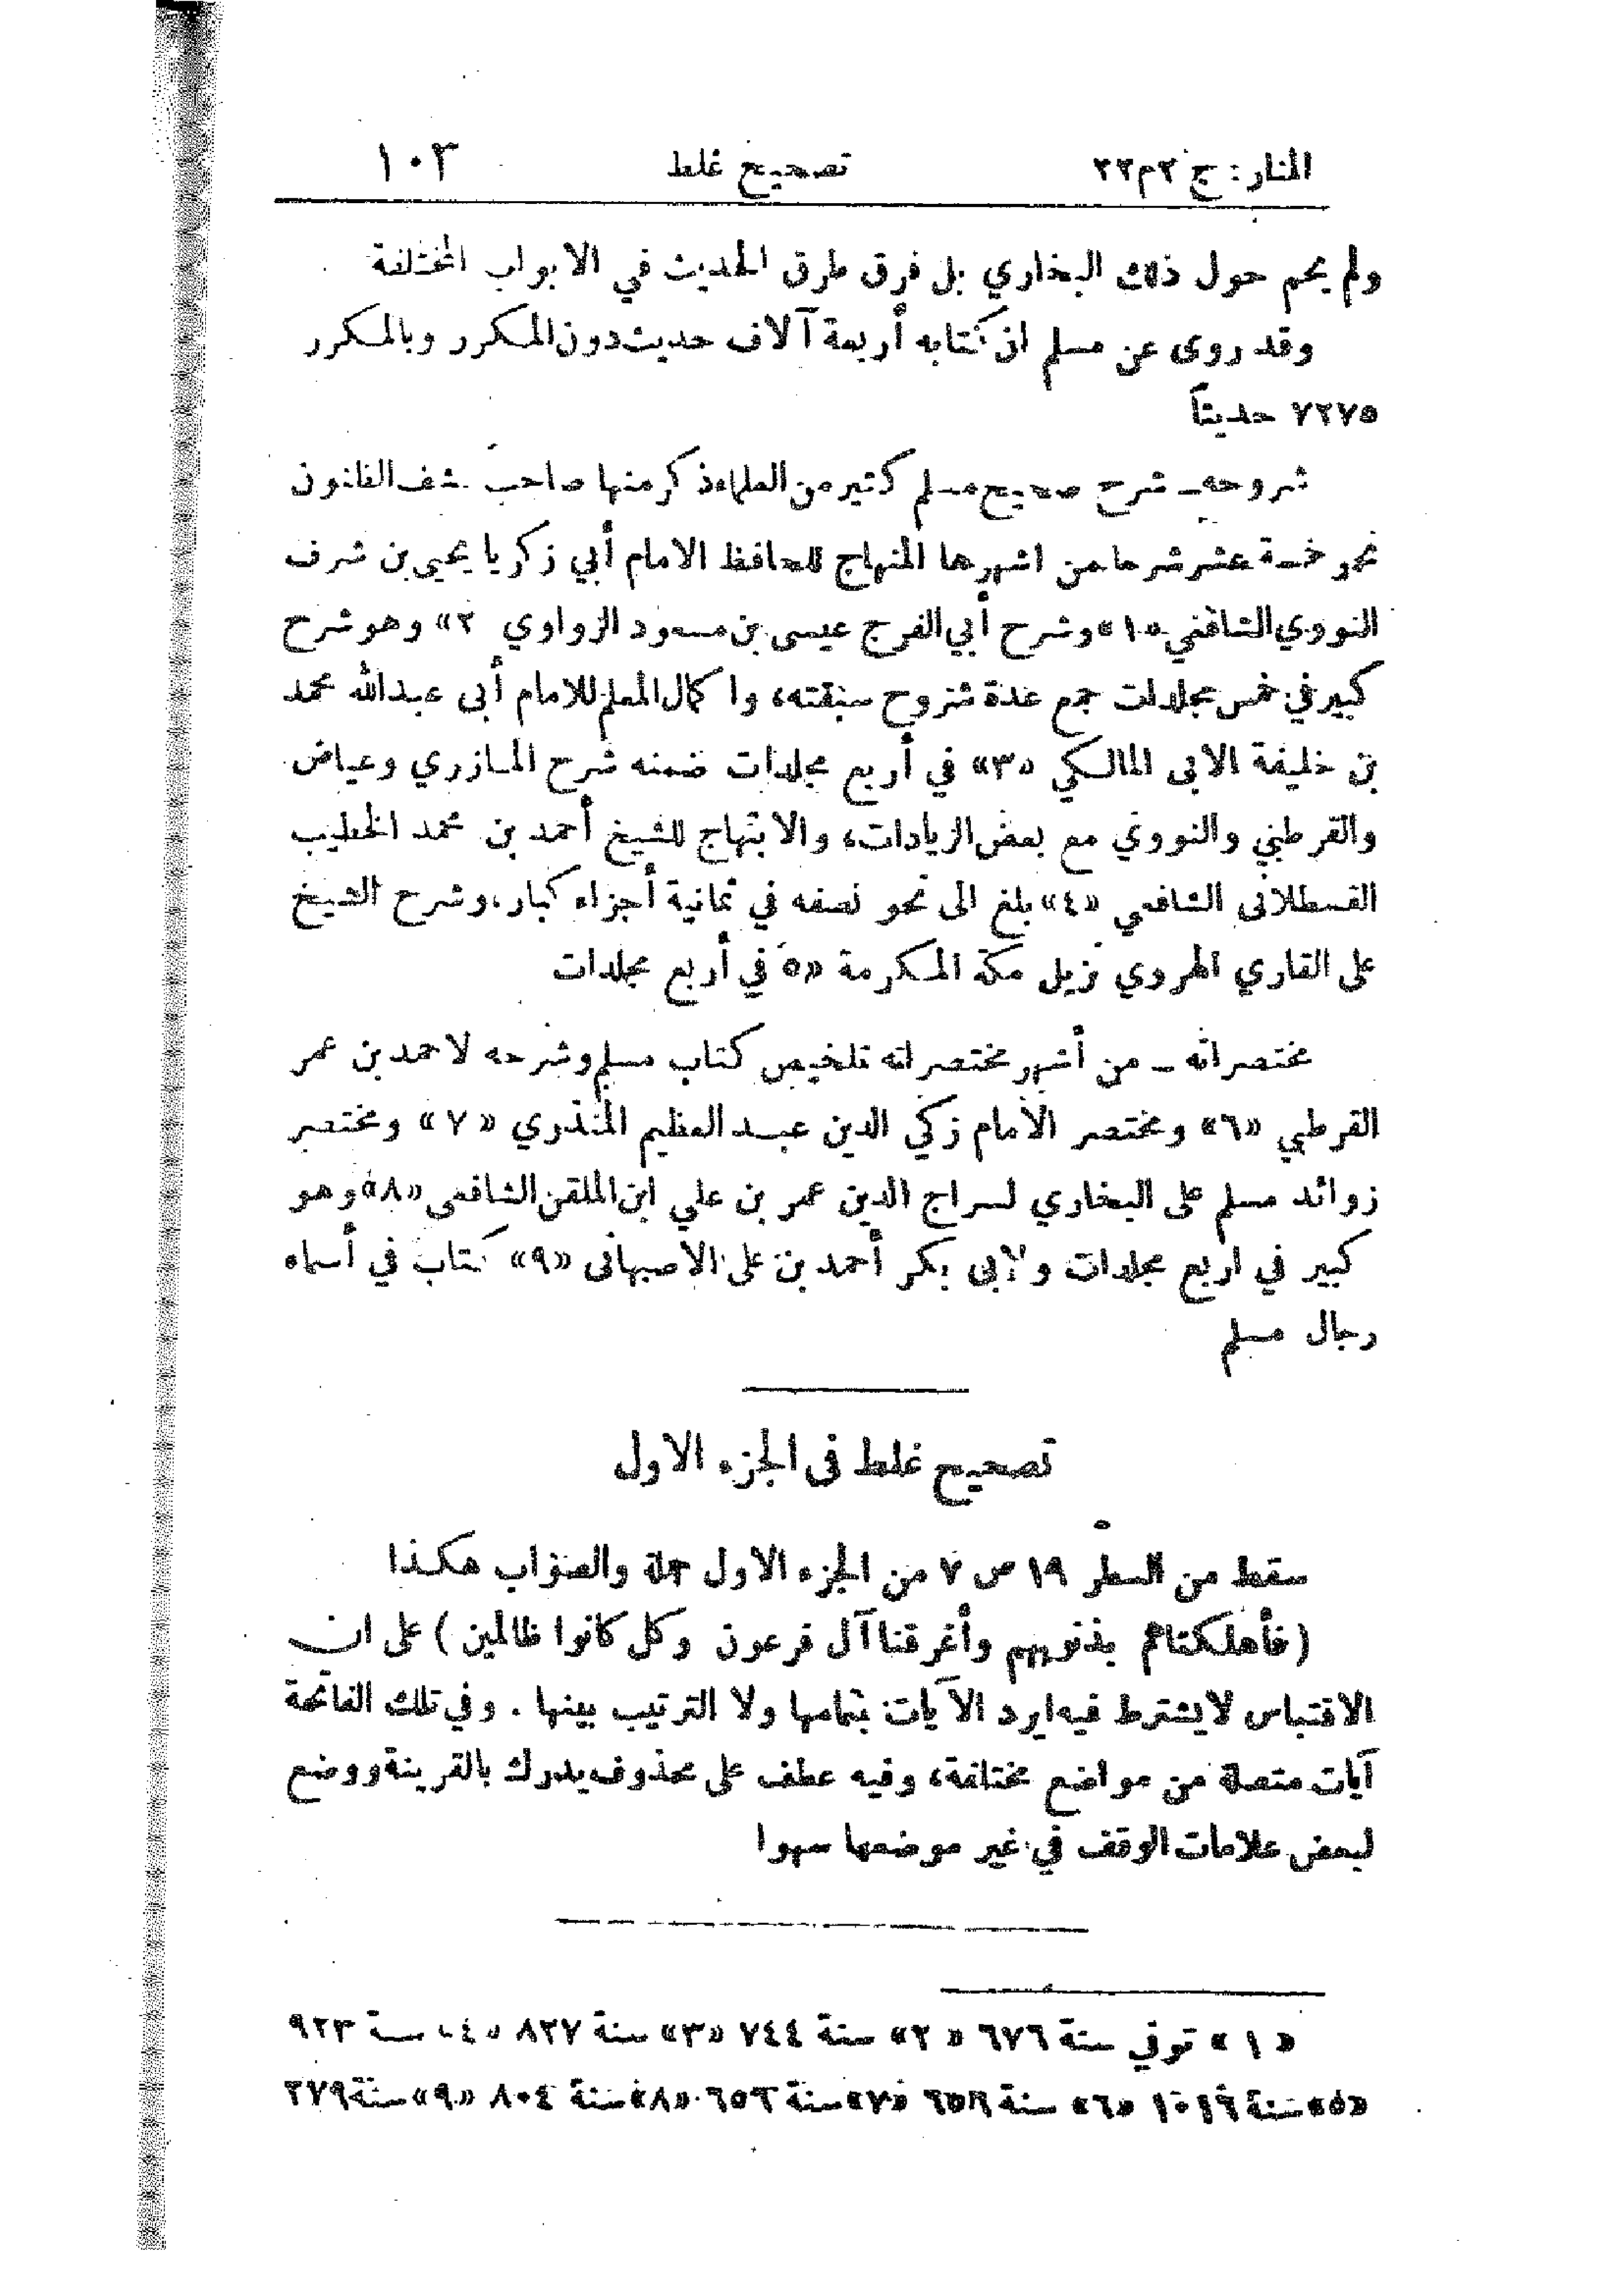 المنار: ج ٢ م ٢٢
تصحيح غلط
١٠٣
ولم يحم حول ذلك البخاري بل فرق طرق الحديث في الابواب المختلفة
وقد روى عن مسلم ان كتابه أربعة آلاف حديث دون المكرر وبالمكرر
٧٢٧٥ حديثاً
شروحه ـ شرح صحيح مسلم كثير من العلماء ذكر منها صاحب كشف الظنون
نحو خمسة عشر شرحا من اشهرها المنهاج للحافظ الامام أبي زكريا يحيى بن شرف
النووي الشافعي «١» وشرح أبي الفرج عيسى بن مسعود الزواوي ٢» وهو شرح
كبير في خمس مجلدات جمع عدة شروح سبقته، واكمال المعلم للامام أبى عبدالله محمد
بن خليفة الابى المالكي «٣» في أربع مجلدات ضمنه شرح المازري وعياض
والقرطبي والنووي مع بعض الزيادات، والابتهاج للشيخ أحمد بن محمد الخطيب
القسطلانى الشافعي «٤» بلغ الى نحو نصفه في ثمانية أجزاء كبار، وشرح الشيخ
على القاري الهروي نزيل مكة المكرمة «٥ في أربع مجلدات
مختصراته ـ من أشهر مختصراته تلخيص كتاب مسلم وشرحه لاحمد بن عمر
القرطبي «٦» ومختصر الامام زكي الدين عبد العظيم المنذري «٧» ومختصر
زوائد مسلم على البخاري لسراج الدين عمر بن علي ابن الملقن الشافعى «٨» وهو
كبير في اربع مجلدات ولابى بكر أحمد بن على الاصبهانى «٩» كتاب في أسماء
رجال مسلم
تصحيح غلط فى الجزء الاول
سقط من السطر ١٩ ص ٧ من الجزء الاول جملة والصواب هكذا
(فأهلكناهم بذنوبهم وأغرقنا آل فرعون وكل كانوا ظالمين) على ان
الاقتباس لا يشترط فيه ايرد الآيات بتمامها ولا الترتيب بينها . وفي تلك الفاتحة
آيات متصلة من مواضع مختلفة، وفيه عطف على محذوف يدرك بالقرينة ووضع
لبعض علامات الوقف في غير موضعها سهوا
«١» توفي سنة ٦٧٦ «٢» سنة ٧٤٤ «٣» سنة ٨٢٧ «٤» سنة ٩٢٣
«٥» سنة ١٠١٦ «٦» سنة ٦٥٦ «٧» سنة ٦٥٦ «٨» سنة ٨٠٤ «٩» سنة ٢٧٩